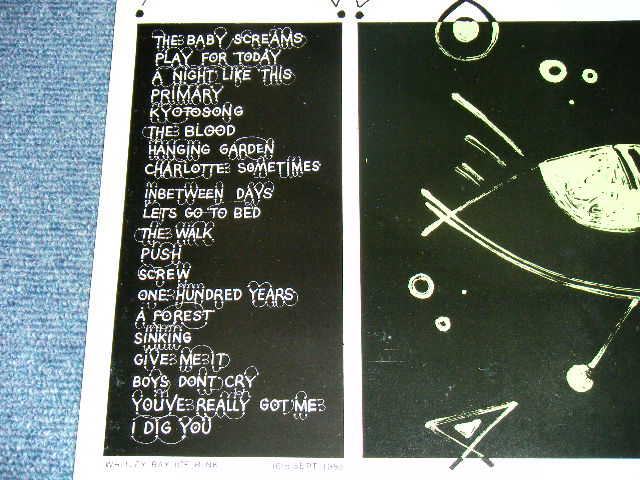 THE BABY SCREAMS
PLAY FOR TODAY
A NIGHT LIKE THIS
PRIMARY
KYOTOSONG
THE BLOOD
HANGING GARDEN
CHARLOTTE SOMETIMES
INBETWEEN DAYS
LETS GO TO BED
THE WALK
PUSH
SCREW
ONE HUNDRED YEARS
A FOREST
SINKING
GIVE ME IT
BOYS DONT CRY
YOU'VE REALLY GOT ME
I DIG YOU
WHITLEY BAY ICE RINK 16TH SEPT. 1985